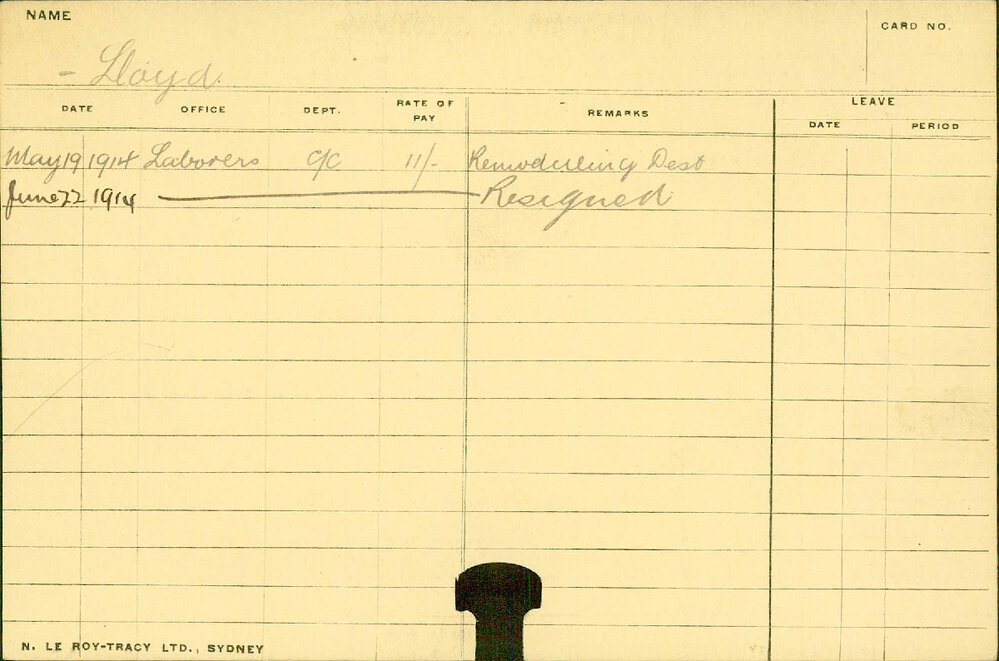 NAME
CARD NO.
- Lloyd.
DATE OFFICE DEPT. RATE OF PAY REMARKS LEAVE
DATE PERIOD
May 19 1914 Laborers C/C 11/- Remodelling Dest
June 22 1914 Resigned
N. LE ROY-TRACY LTD., SYDNEY